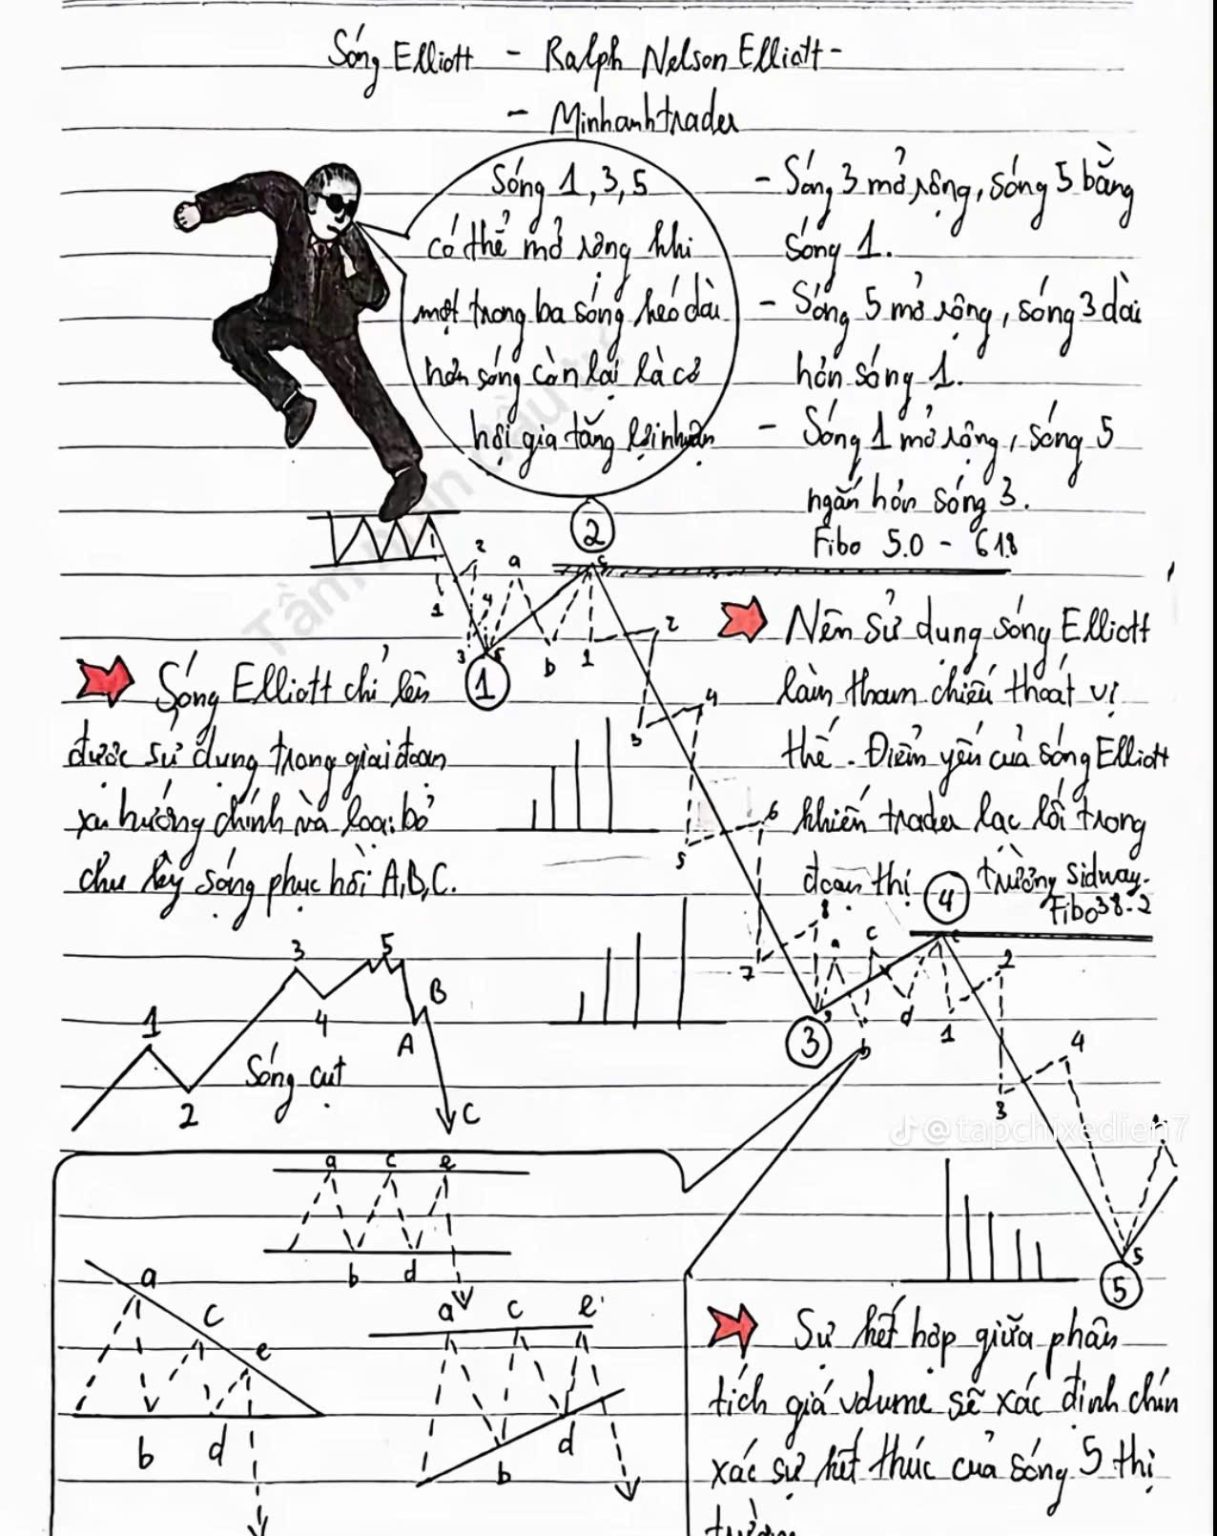 Sóng Elliott - Ralph Nelson Elliott -
- Minhanhtrader
Sóng 1, 3, 5
có thể mở rộng khi
một trong ba sóng kéo dài
hơn sóng còn lại là cơ
hội gia tăng lợi nhuận
- Sóng 3 mở rộng, sóng 5 bằng
sóng 1.
- Sóng 5 mở rộng, sóng 3 dài
hơn sóng 1.
- Sóng 1 mở rộng, sóng 5
ngắn hơn sóng 3.
Fibo 5.0 - 618
2
c
1
2
a
4
3
5
1
b
1
2
3
4
5
6
7
8
Sóng Elliott chỉ lên
được sử dụng trong giai đoạn
xu hướng chính và loại bỏ
chu kỳ sóng phục hồi A,B,C.
Nên sử dụng sóng Elliott
làm tham chiếu thoát vị
thế. Điểm yếu của sóng Elliott
khiến trader lạc lối trong
đoạn thị trường Sidway.
Fibo 38.2
4
3
a
b
c
d
e
1
2
3
4
5
5
1
2
3
4
5
A
B
C
Sóng cụt
@tapchixedien7
a c e
b d
a
c
e
b d
a c e
b d
Sự kết hợp giữa phân
tích giá volume sẽ xác định chín
xác sự kết thúc của sóng 5 thị
trường